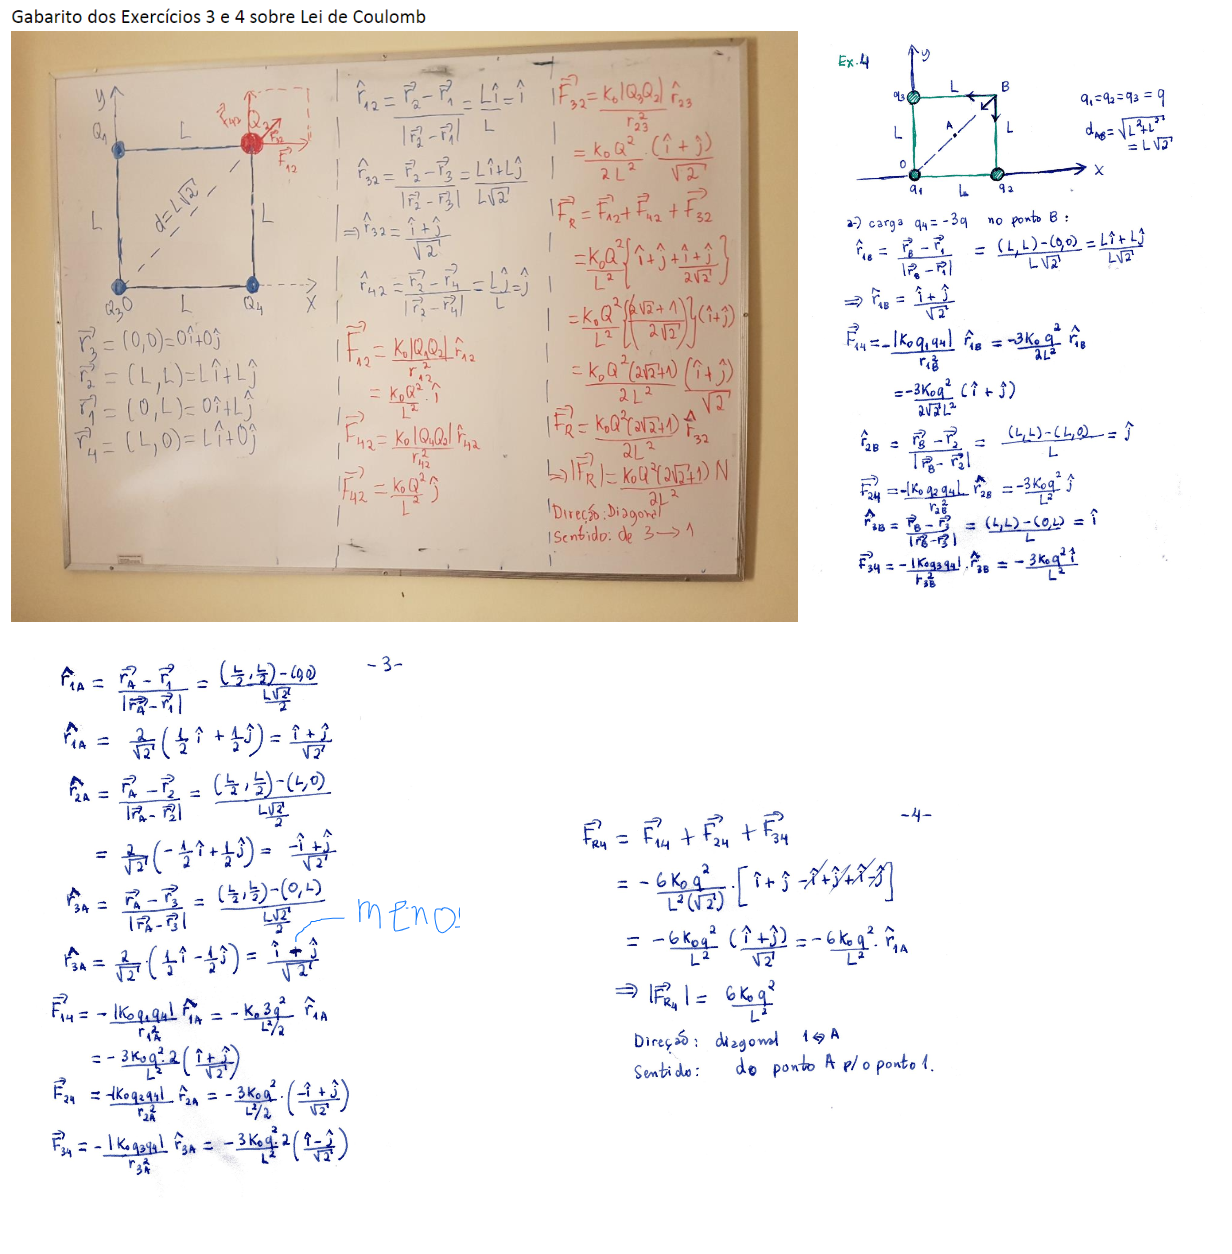 Gabarito dos Exercícios 3 e 4 sobre Lei de Coulomb
y
Q₁
L
Q₂
F⃗₁₂
L
d=L√2
L
Q₃ O
L
Q₄
X
r⃗₃ = (0,0)=0î+0ĵ
r⃗₂ = (L,L)=Lî+Lĵ
r⃗₁ = (0,L)=0î+Lĵ
r⃗₄ = (L,0)=Lî+0ĵ
r̂₁₂ = (r⃗₂ - r⃗₁)/|r⃗₂ - r⃗₁| = Lî/L = î
r̂₃₂ = (r⃗₂ - r⃗₃)/|r⃗₂ - r⃗₃| = (Lî+Lĵ)/(L√2)
⇒ r̂₃₂ = (î+ĵ)/√2
r̂₄₂ = (r⃗₂ - r⃗₄)/|r⃗₂ - r⃗₄| = Lĵ/L = ĵ
F⃗₁₂ = K₀|Q₁Q₂|/r₁₂² r̂₁₂
= K₀Q²/L² · î
F⃗₄₂ = K₀|Q₄Q₂|/r₄₂² r̂₄₂
F⃗₄₂ = K₀Q²/L² ĵ
F⃗₃₂ = K₀|Q₃Q₂|/r₂₃² r̂₂₃
= K₀Q²/2L² · (î+ĵ)/√2
F⃗R = F⃗₁₂ + F⃗₄₂ + F⃗₃₂
= K₀Q²/L² {î+ĵ+(î+ĵ)/2√2}
= K₀Q²/L² {(2√2+1)/2√2}(î+ĵ)
= K₀Q²(2√2+1)/2L² (î+ĵ)/√2
F⃗R = K₀Q²(2√2+1)/2L² r̂₃₂
↳⇒|F⃗R| = K₀Q²(2√2+1)/2L² N
Direção: Diagonal
Sentido: de 3 → 1
Ex.4
y
q₃
L
B
L
A
L
O
q₁
L
q₂
X
q₁=q₂=q₃=q
dAB = √(L²+L²)
= L√2
a-) carga q₄ = -3q no ponto B:
r̂₁B = (r⃗B - r⃗₁)/|r⃗B - r⃗₁| = ((L,L)-(0,0))/(L√2) = (Lî+Lĵ)/(L√2)
⇒ r̂₁B = (î+ĵ)/√2
F⃗₁₄ = -|K₀q₁q₄|/r₁B² r̂₁B = -3K₀q²/2L² r̂₁B
= -3K₀q²/(2√2L²) (î+ĵ)
r̂₂B = (r⃗B - r⃗₂)/|r⃗B - r⃗₂| = ((L,L)-(L,0))/L = ĵ
F⃗₂₄ = -|K₀q₂q₄|/r₂B² r̂₂B = -3K₀q²/L² ĵ
r̂₃B = (r⃗B - r⃗₃)/|r⃗B - r⃗₃| = ((L,L)-(0,L))/L = î
F⃗₃₄ = -|K₀q₃q₄|/r₃B² · r̂₃B = -3K₀q²î/L²
-3-
r̂₁A = (r⃗A - r⃗₁)/|r⃗A - r⃗₁| = ((L/2,L/2)-(0,0))/(L√2/2)
r̂₁A = 2/√2 (1/2 î + 1/2 ĵ) = (î+ĵ)/√2
r̂₂A = (r⃗A - r⃗₂)/|r⃗A - r⃗₂| = ((L/2,L/2)-(L,0))/(L√2/2)
= 2/√2 (-1/2 î + 1/2 ĵ) = (-î+ĵ)/√2
r̂₃A = (r⃗A - r⃗₃)/|r⃗A - r⃗₃| = ((L/2,L/2)-(0,L))/(L√2/2)
MENO!
r̂₃A = 2/√2 · (1/2 î - 1/2 ĵ) = (î + ĵ)/√2
F⃗₁₄ = -|K₀q₁q₄|/r₁A² r̂₁A = -K₀3q²/(L²/2) r̂₁A
= -3K₀q²·2/L² ((î+ĵ)/√2)
F⃗₂₄ = -|K₀q₂q₄|/r₂A² r̂₂A = -3K₀q²/(L²/2) · ((-î+ĵ)/√2)
F⃗₃₄ = -|K₀q₃q₄|/r₃A² r̂₃A = -3K₀q²·2/L² ((î-ĵ)/√2)
-4-
F⃗R4 = F⃗₁₄ + F⃗₂₄ + F⃗₃₄
= -6K₀q²/(L²(√2)) · [î+ĵ-î+ĵ+î-ĵ]
= -6K₀q²/L² (î+ĵ)/√2 = -6K₀q²/L² · r̂₁A
⇒ |F⃗R4| = 6K₀q²/L²
Direção: diagonal 1⇔A
Sentido: do ponto A p/ o ponto 1.